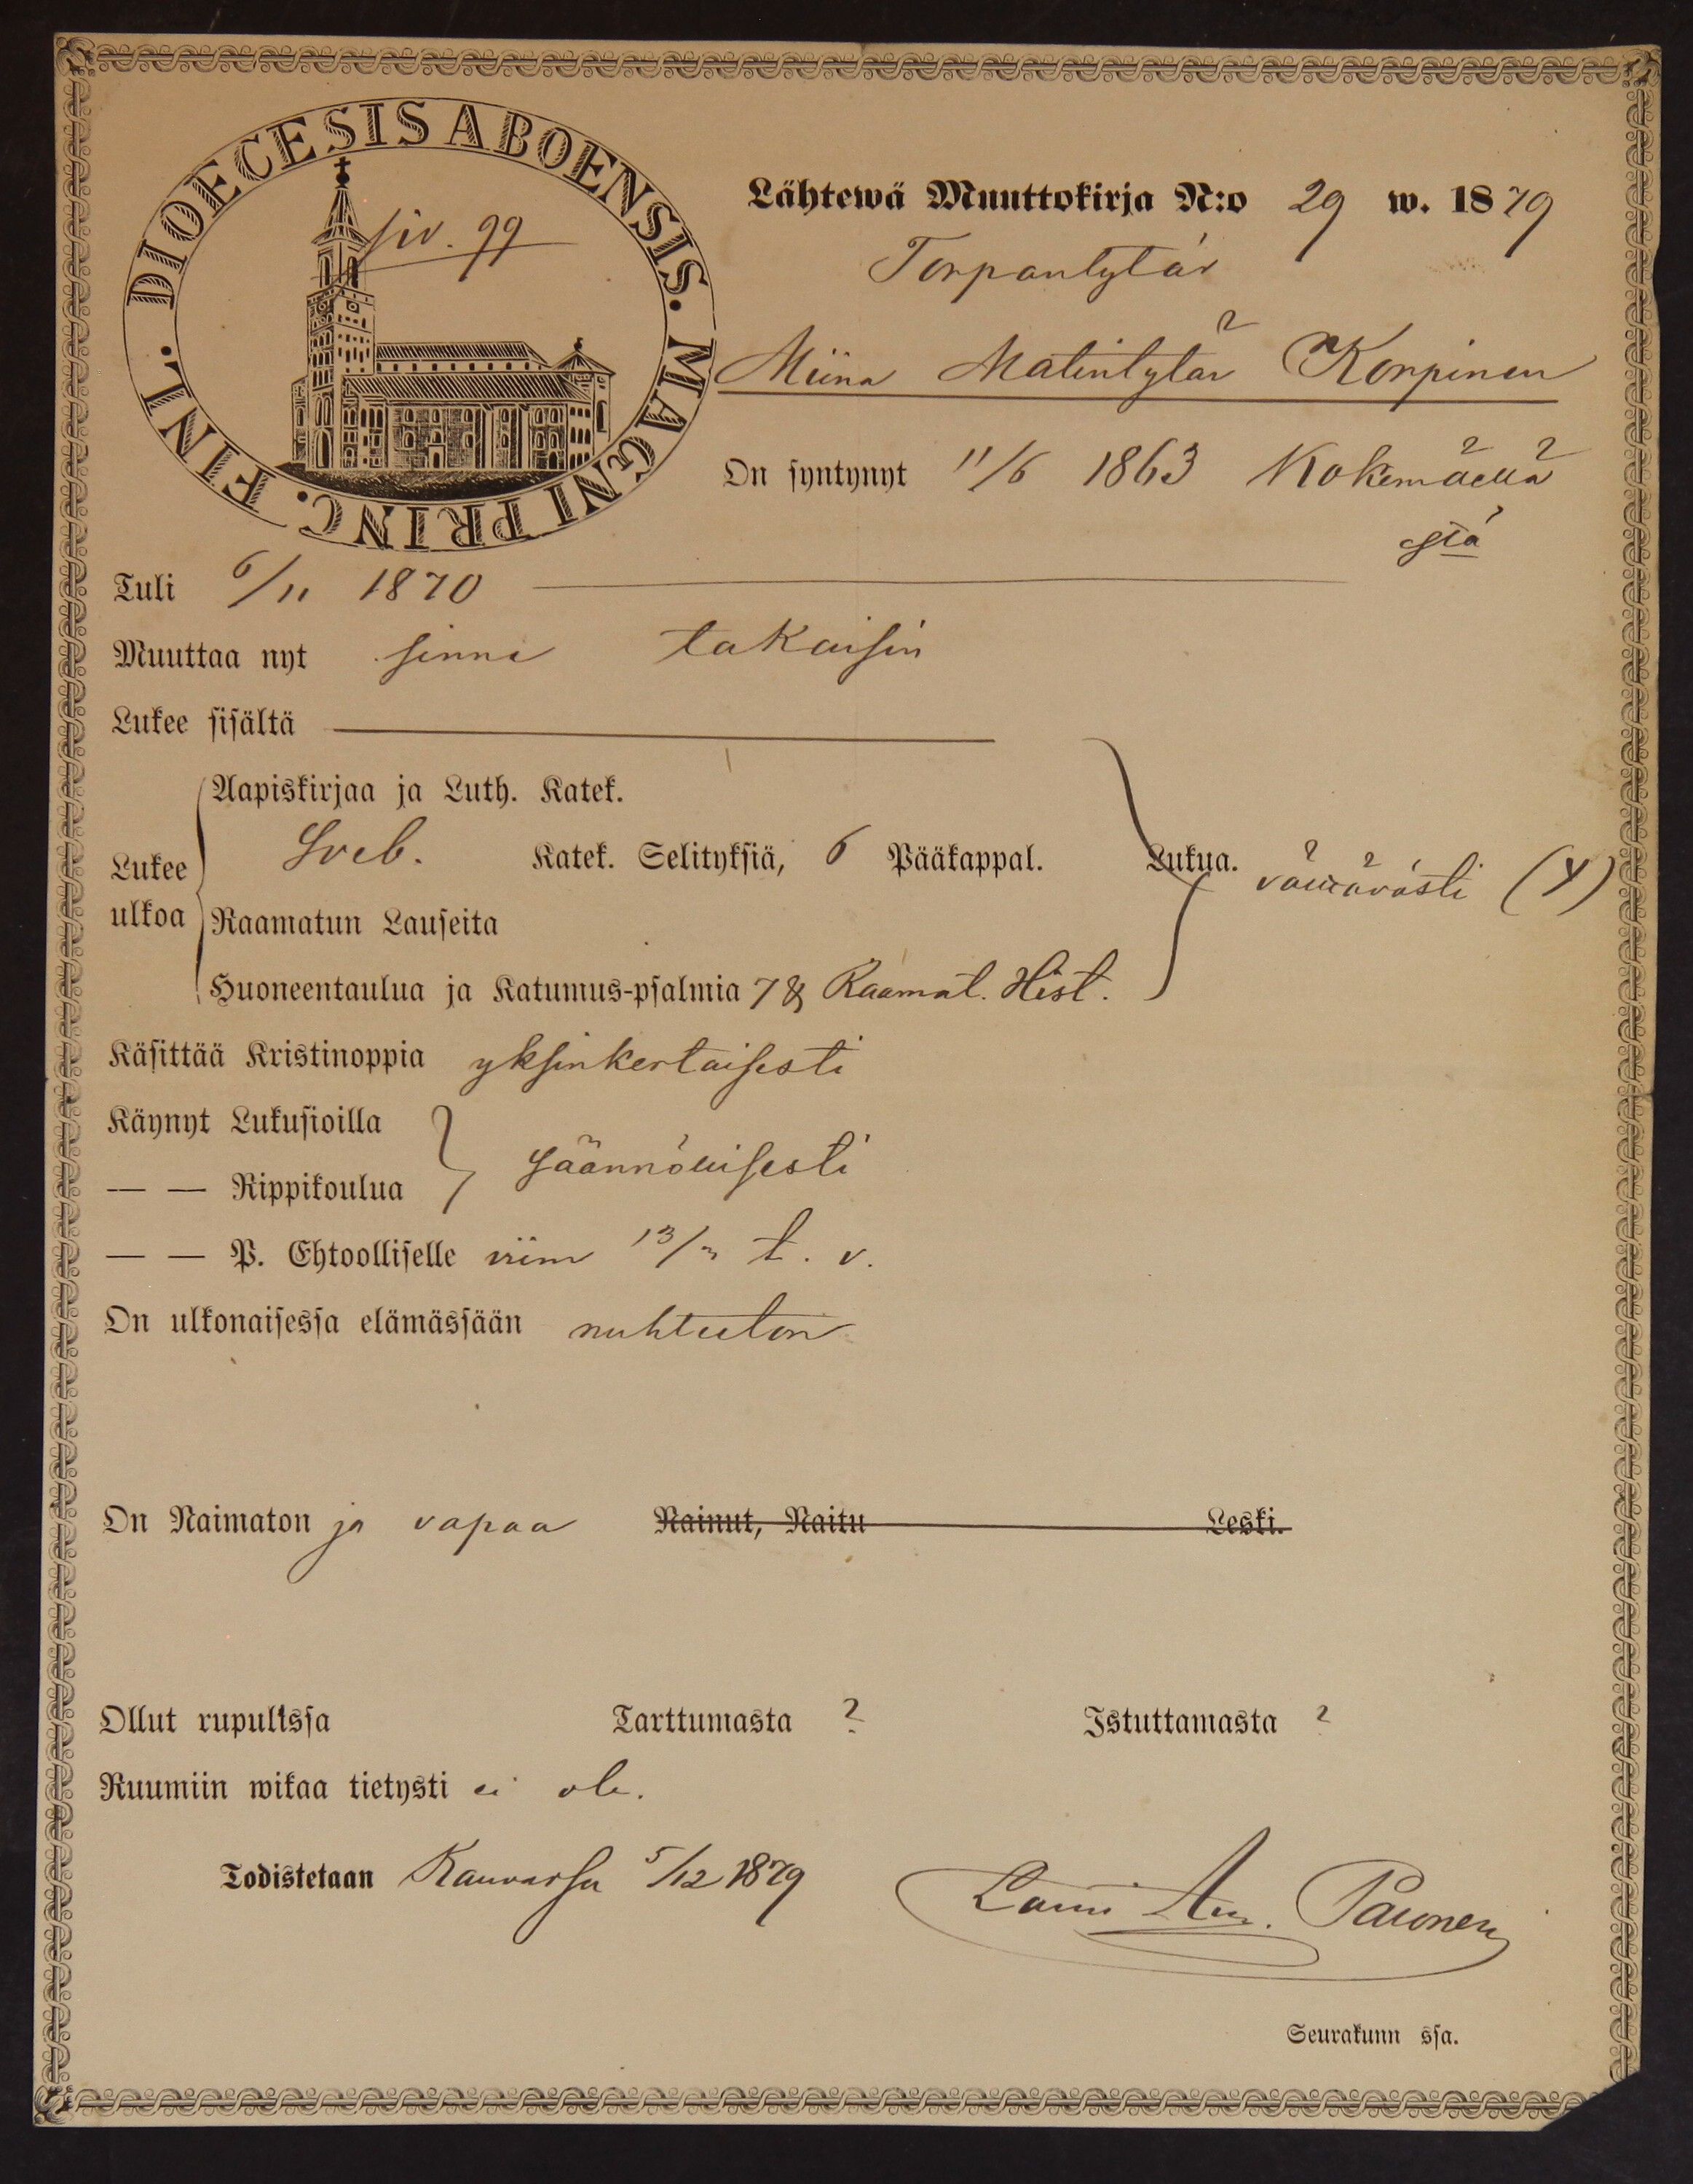 DIOECESIS ABOENSIS. MAGNI PRINC. FINL.
siv. 99
Lähtewä Muuttokirja N:o 29 w. 1879
Torpantytär
Miina Matintytär Korpinen
On syntynyt 11/6 1863 Kokemäellä
stä
Tuli 6/11 1870
Muuttaa nyt sinne takaisin
Lukee sisältä
Aapiskirjaa ja Luth. Katek.
Lukee ulkoa Sveb. Katek. Selityksiä, 6 Pääkappal. Lukua. välttävästi (y)
Raamatun Lauseita
Huoneentaulua ja Katumus-psalmia 7 & Raamat. Hist.
Käsittää Kristinoppia yksinkertaisesti
Käynyt Lukusioilla
säännöllisesti
— — Rippikoulua
— — P. Ehtoolliselle viim 13/7 t. v.
On ulkonaisessa elämässään nuhteeton
On Naimaton ja vapaa Nainut, Naitu Leski.
Ollut rupulissa Tarttumasta ? Istuttamasta ?
Ruumiin wikaa tietysti ei ole.
Todistetaan Kauvatsa 5/12 1879
Paunonen
Seurakunn ssa.